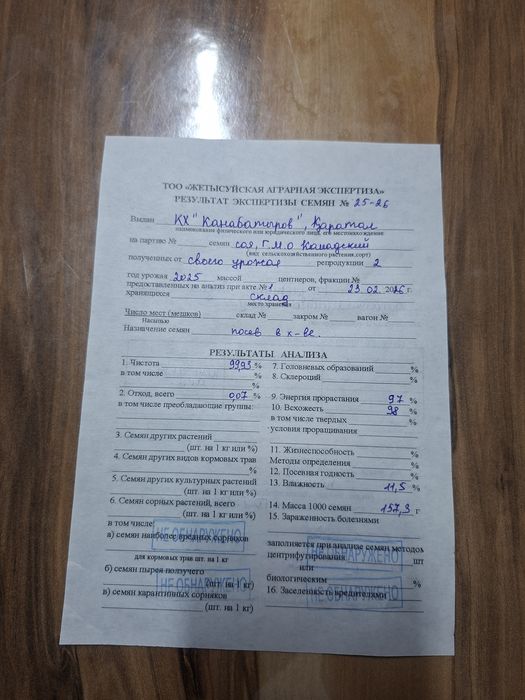 ТОО «ЖЕТЫСУЙСКАЯ АГРАРНАЯ ЭКСПЕРТИЗА»
РЕЗУЛЬТАТ ЭКСПЕРТИЗЫ СЕМЯН № 25-26
Выдан КХ "Канабатыров", Каратал
наименование физического или юридического лица, его местонахождение
на партию № семян соя, Г.М.О Канадский
(вид сельскохозяйственного растения,сорт)
полученных от своего урожая репродукции 2
год урожая 2025 массой центнеров, фракции №
предоставленных на анализ при акте № 1 от 23.02.2026 г.
хранящихся склад
место хранения
Число мест (мешков) склад № закром № вагон №
Насыпью
Назначение семян посев в х-ве.
РЕЗУЛЬТАТЫ АНАЛИЗА
1. Чистота 99,93 %
в том числе %
%
2. Отход, всего 0,07 %
в том числе преобладающие группы:
3. Семян других растений
(шт. на 1 кг или %)
4. Семян других видов кормовых трав
%
5. Семян других культурных растений
(шт. на 1 кг или %)
6. Семян сорных растений, всего
(шт. на 1 кг или %)
в том числе
НЕ ОБНАРУЖЕНО
а) семян наиболее вредных сорняков
для кормовых трав шт. на 1 кг
б) семян пырея ползучего
(шт. на 1 кг)
НЕ ОБНАРУЖЕНО
в) семян карантинных сорняков
(шт. на 1 кг)
7. Головневых образований %
8. Склероций %
9. Энергия прорастания 97 %
10. Всхожесть 98 %
в том числе твердых
условия проращивания
11. Жизнеспособность %
Методы определения
12. Посевная годность %
13. Влажность 11,5 %
14. Масса 1000 семян 157,3 г
15. Зараженность болезнями
заполняется при анализе семян методом
центрифугирования шт
НЕ ОБНАРУЖЕНО
или
биологическим %
НЕ ОБНАРУЖЕНО
16. Заселенность вредителями